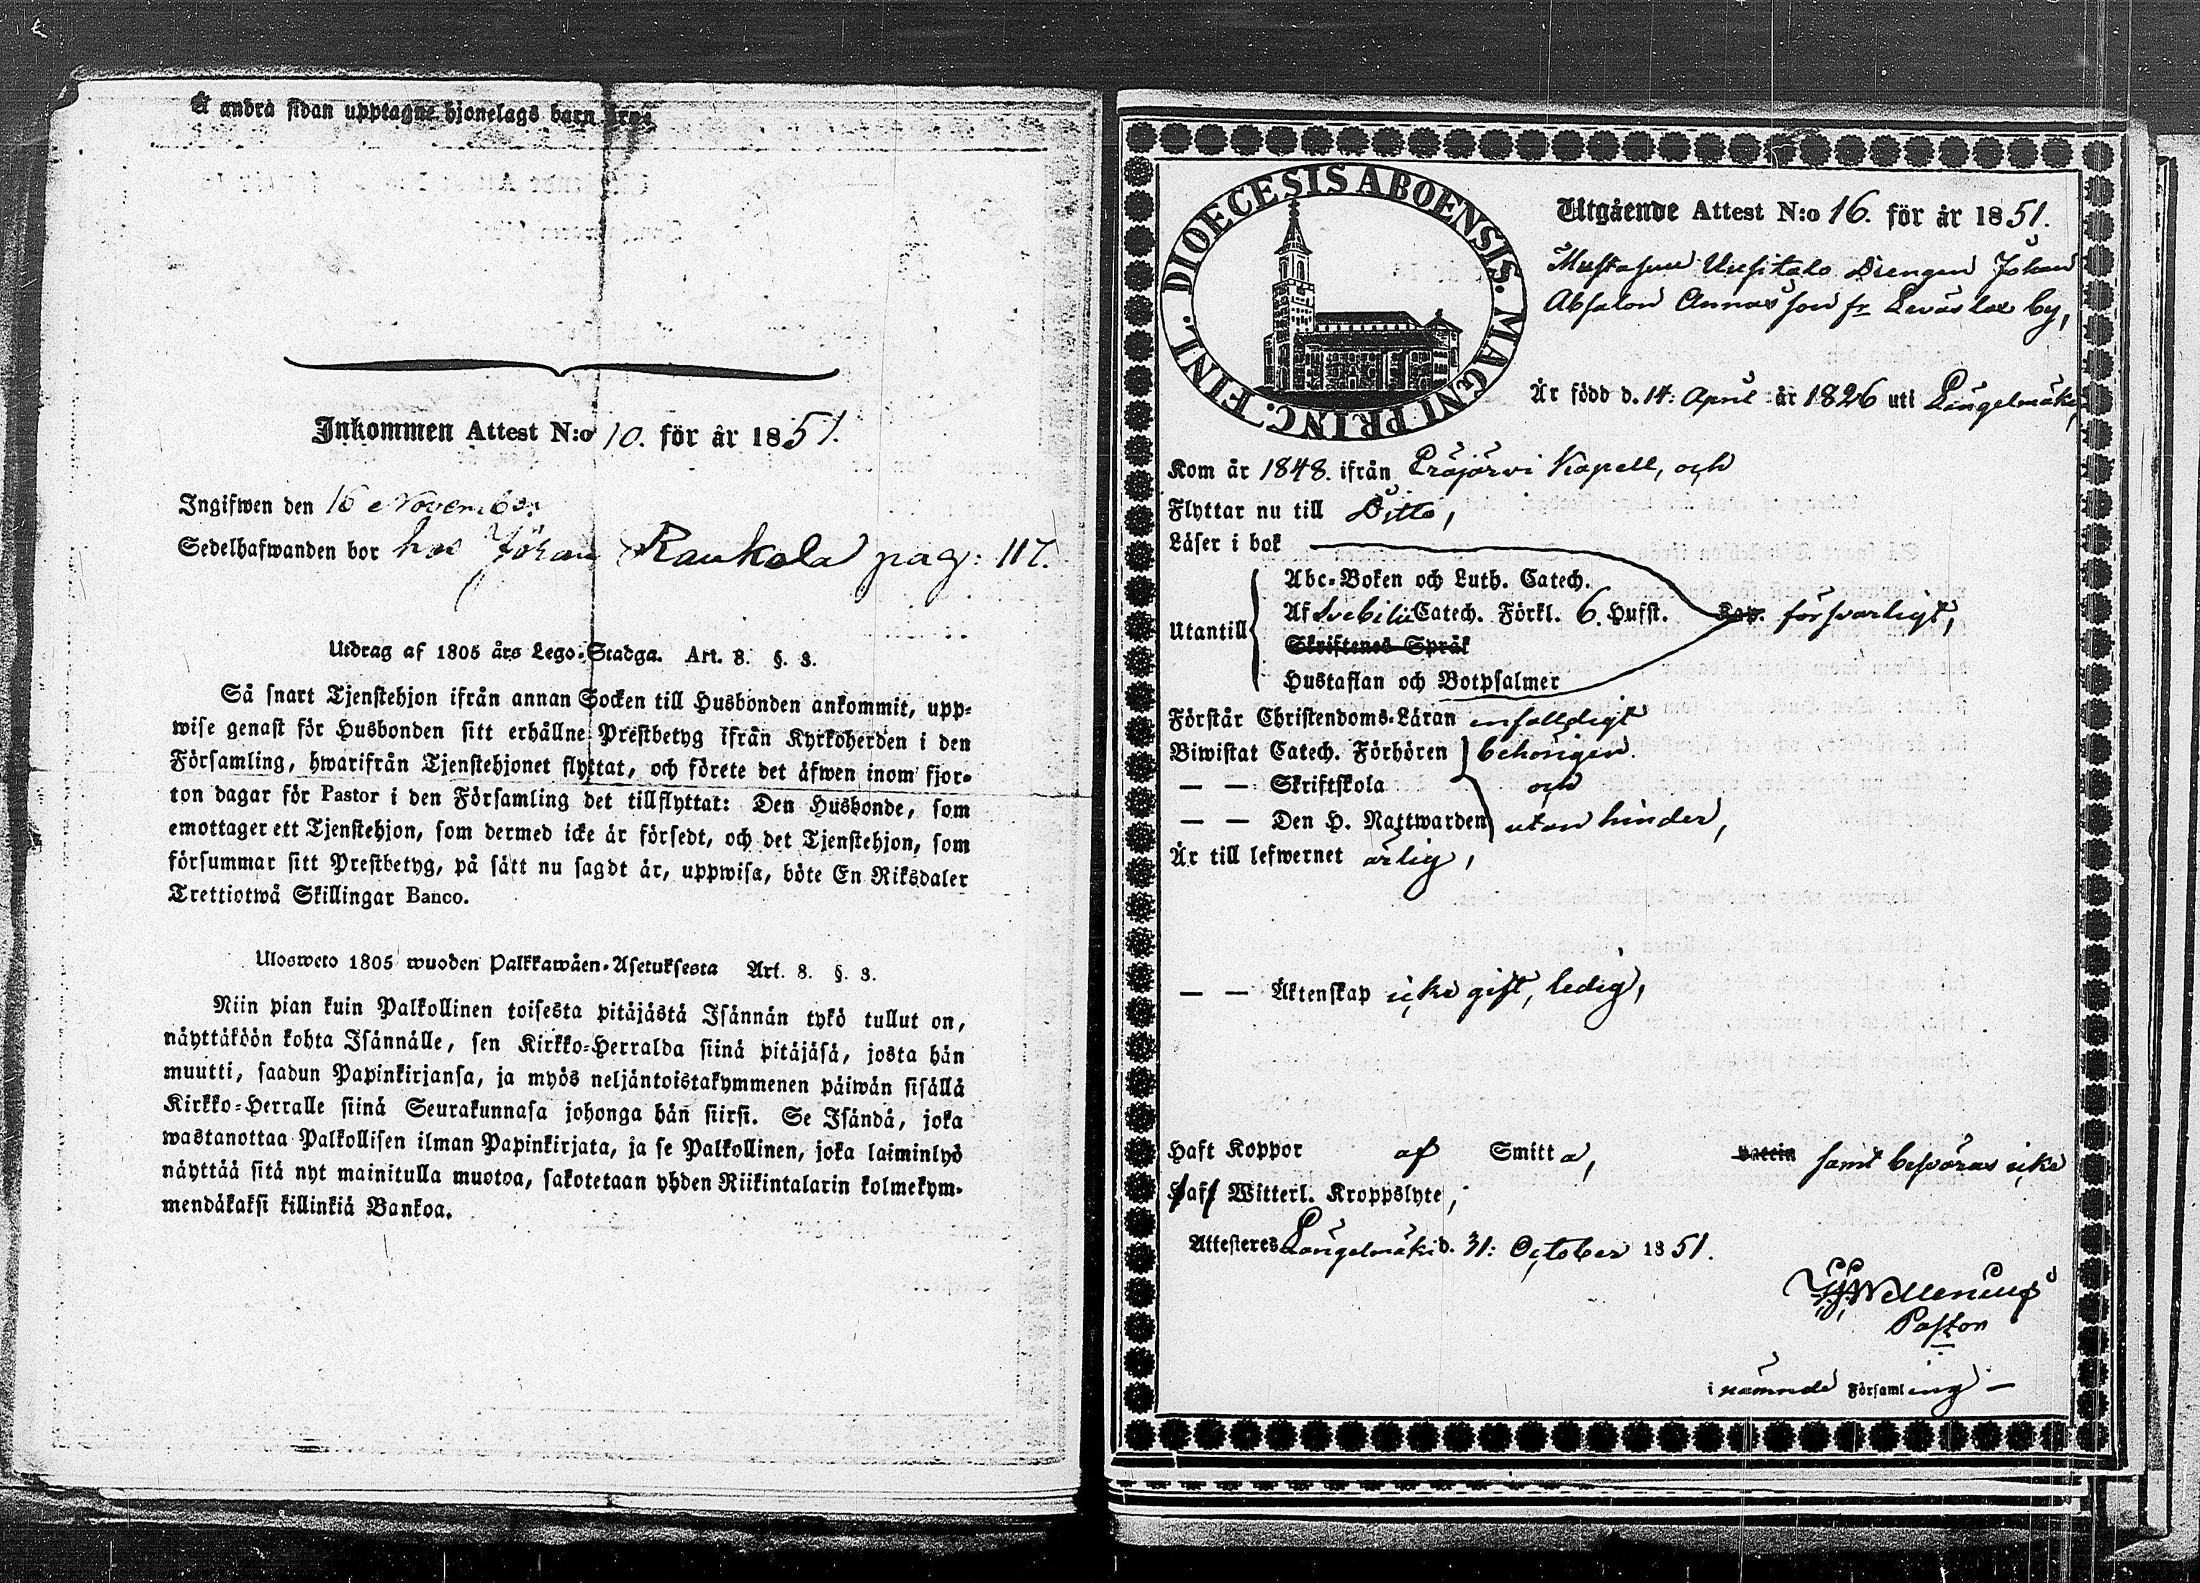 Å andra sidan upptagne hjonelags barn äro:
Inkommen Attest N:o 10. för år 1851.
Ingifwen den 16 November
Sedelhafwanden bor hos Johan Raukola pag: 117.
Utdrag af 1805 års Lego-Stadga. Art. 8. §. 3.
Så snart Tjenstehjon ifrån annan Socken till Husbonden ankommit, upp-
wise genast för Husbonden sitt erhållne Prestbetyg ifrån Kyrkoherden i den
Församling, hwarifrån Tjenstehjonet flyttat, och förete det äfwen inom fjor-
ton dagar för Pastor i den Församling det tillflyttat: Den Husbonde, som
emottager ett Tjenstehjon, som dermed icke är försedt, och det Tjenstehjon, som
försummar sitt Prestbetyg, på sätt nu sagdt är, uppwisa, böte En Riksdaler
Trettiotwå Skillingar Banco.
Ulosweto 1805 wuoden Palkkawäen-Asetuksesta Art. 8. §. 3.
Niin pian kuin Palkollinen toisesta pitäjästä Isännän tykö tullut on,
näyttäköön kohta Isännälle, sen Kirkko-Herralda siinä pitäjäsä, josta hän
muutti, saadun Papinkirjansa, ja myös neljäntoistakymmenen päiwän sisällä
Kirkko-Herralle siinä Seurakunnasa johonga hän siirsi. Se Isändä, joka
wastanottaa Palkollisen ilman Papinkirjata, ja se Palkollinen, joka laiminlyö
näyttää sitä nyt mainitulla muotoa, sakotetaan yhden Riikintalarin kolmekym-
mendäkaksi killinkiä Bankoa.
DIOECESIS ABOENSIS. MAGNI PRINC. FINL.
Utgående Attest N:o 16. för år 1851.
Uusitalo Drengen Johan
Absalon Annasson fr by,
Är född d. 14: April år 1826 uti Längelmäki,
Kom år 1848. ifrån Eräjärvi Kapell, och
Flyttar nu till Ditto,
Läser i bok
Utantill
Abc-Boken och Luth. Catech.
Af Svebilii Catech. Förkl. 6. Hufst. Cap. försvarligt,
Skriftenes Språk
Hustaflan och Botpsalmer
Förstår Christendoms-Läran enfalldigt
Biwistat Catech. Förhören behörigen
— — Skriftskola och
— — Den H. Nattwarden utan hinder,
Är till lefwernet ärlig,
— — Äktenskap icke gift, ledig,
Haft Koppor af Smitta, vaccin samt besväras icke
af Witterl. Kroppslyte,
Attesteres Längelmäki d. 31: October 1851.
Pastor
i nämnde Församling —